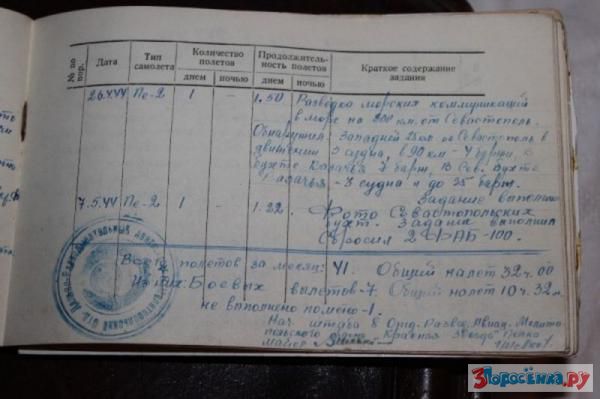 № по пор. Дата Тип самолета Количество полетов Продолжительность полетов Краткое содержание задания
днем ночью днем ночью
26.4.44 Пе-2 1 – 1.50 Разведка морских коммуникаций
в море на 200 км. от Севастополь.
Обнаружил: Западней 25 км от Севастополь в
движении 3 судна, в 90 км – 4 баржи, в
бухте Казачья 7 барж, В Сев. Бухте
Казачья – 3 судна и до 25 барж.
Задание выполнил
7.5.44 Пе-2 1 – 1.22. Фото Севастопольских
бухт. Задание выполнил
Сбросил 2 ФАБ-100.
Всего полетов за месяц: 41. Общий налет 32ч. 00
Из них: Боевых вылетов-7. Общий налет 10ч. 32м.
не выполнено по метео-1.
Нач. штаба 8 Отд. Развед. Авиац. Мелито
польского Красная Звезда полка
майор
3Поросёнка.ру